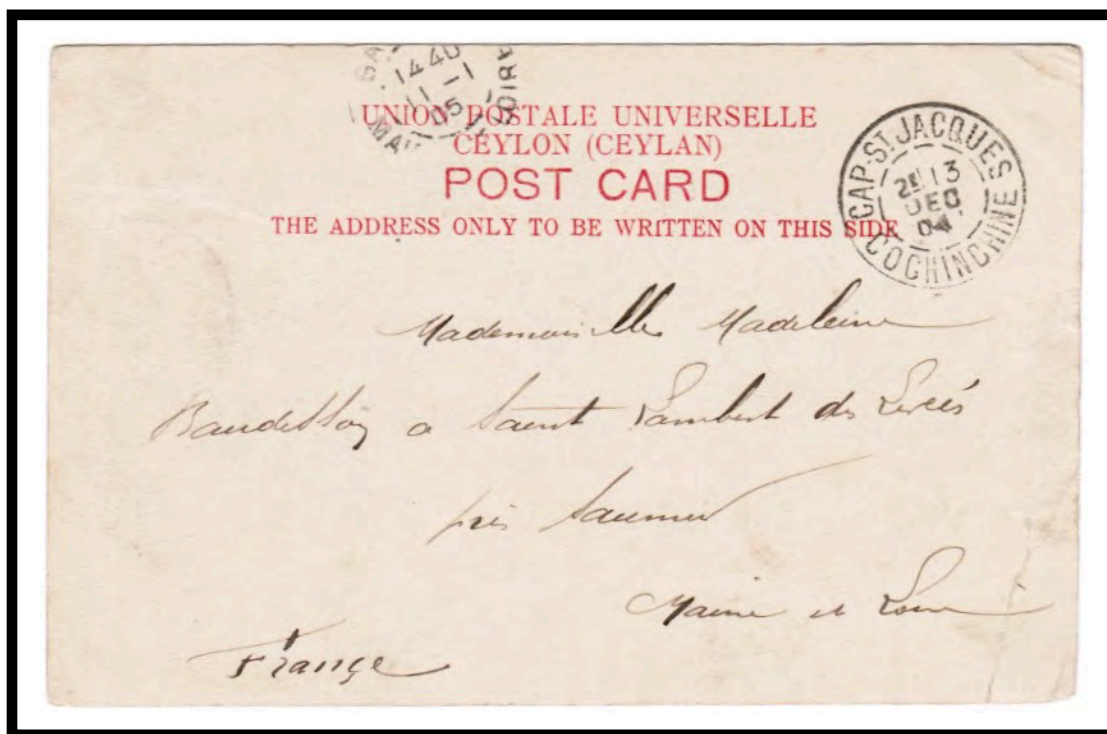 14 40
11 - 1
05
UNION POSTALE UNIVERSELLE
CEYLON (CEYLAN)
POST CARD
THE ADDRESS ONLY TO BE WRITTEN ON THIS SIDE
CAP-ST JACQUES
2E 13
DEC
04
COCHINCHINE
Mademoiselle Madeleine
a Saint Lambert des Levées
près Saumur
Maine et Loire
France